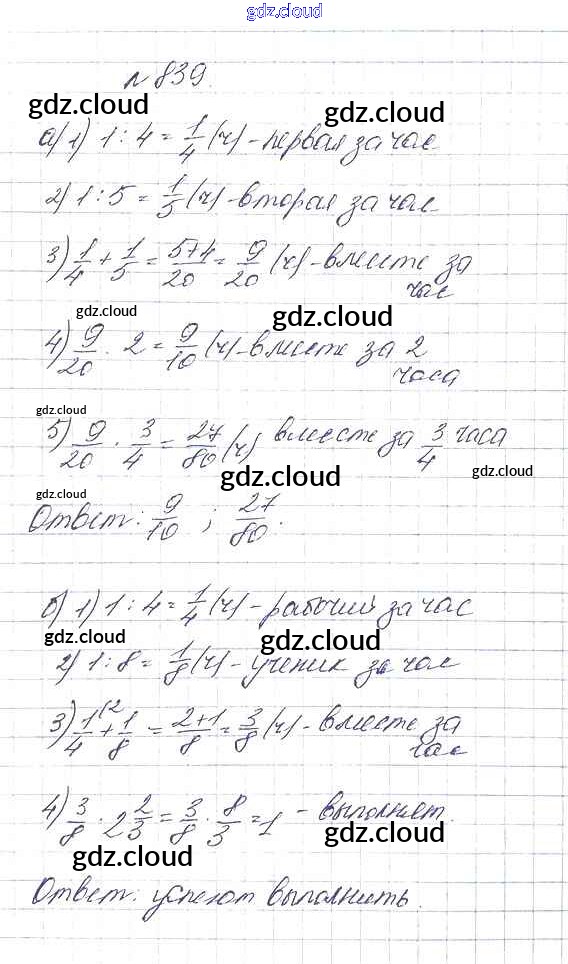 gdz.cloud
№ 839.
gdz.cloud gdz.cloud
а) 1) 1 : 4 = 1/4 (ч) - первая за час
2) 1 : 5 = 1/5 (ч) - вторая за час
3) 1/4 + 1/5 = 5+4/20 = 9/20 (ч) - вместе за
час
gdz.cloud gdz.cloud
4) 9/20 · 2 = 9/10 (ч) - вместе за 2
часа
gdz.cloud
5) 9/20 · 3/4 = 27/80 (ч) вместе за 3/4 часа
gdz.cloud gdz.cloud
gdz.cloud
Ответ: 9/10 ; 27/80.
б) 1) 1 : 4 = 1/4 (ч) - рабочий за час
gdz.cloud gdz.cloud
2) 1 : 8 = 1/8 (ч) - ученик за час
3) 1/4 (2 + 1/8 = 2+1/8 = 3/8 (ч) - вместе за
час
4) 3/8 · 2 2/3 = 3/8 · 8/3 = 1 - выполнят.
gdz.cloud gdz.cloud
Ответ: успеют выполнить.
gdz.cloud gdz.cloud